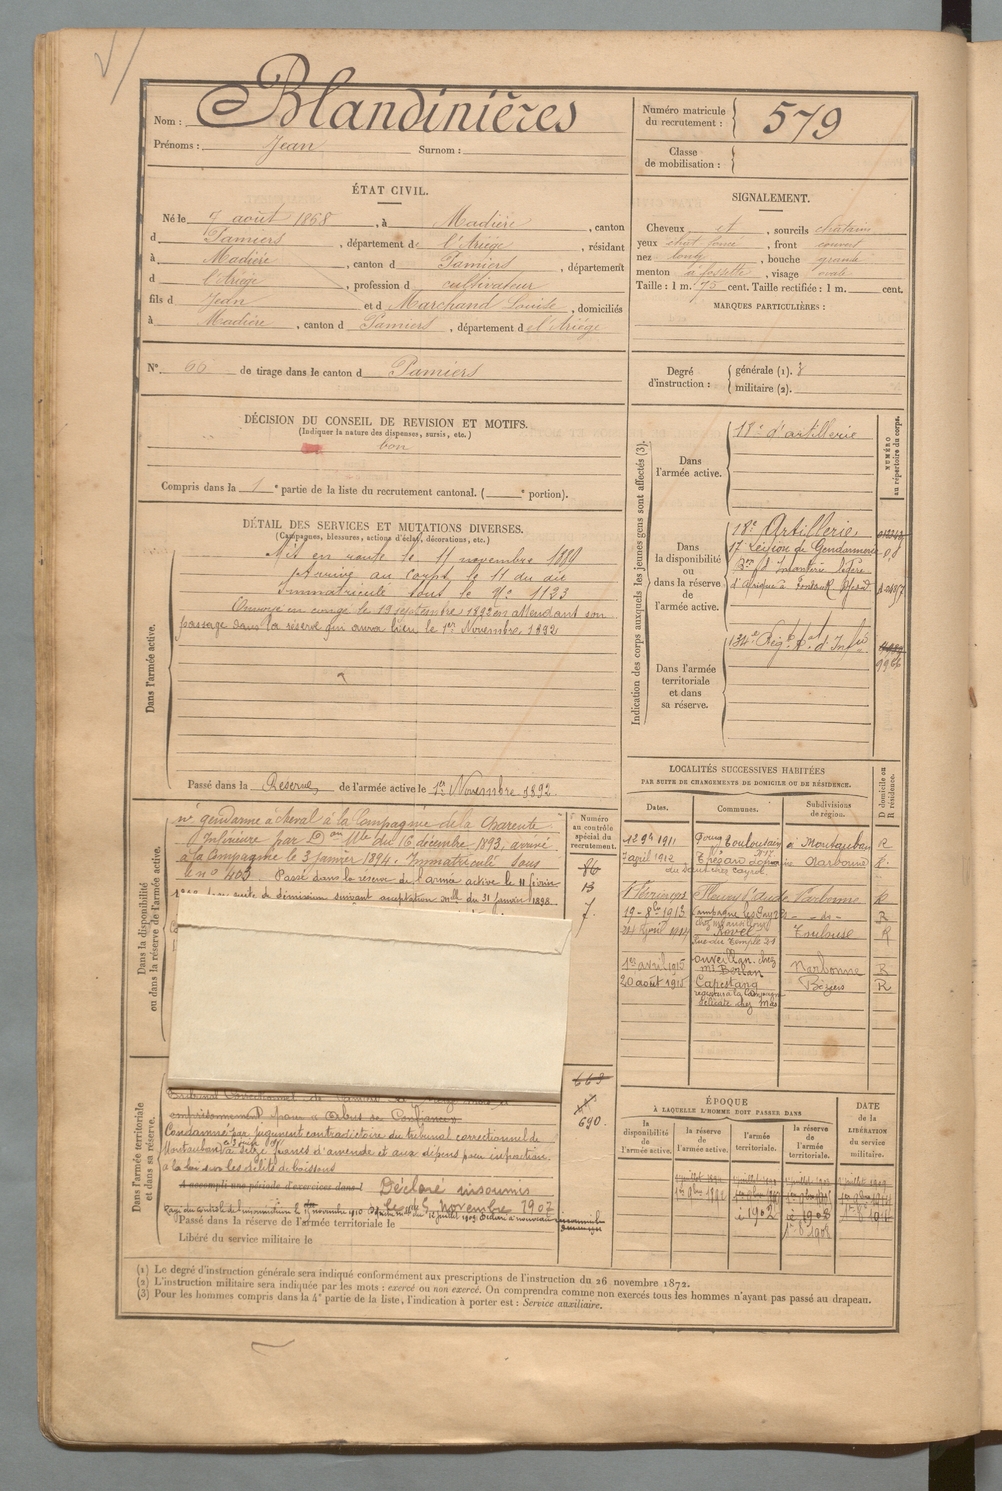 Nom : Blandinières
Prénoms : Jean Surnom :
Numéro matricule
du recrutement : 579
Classe
de mobilisation :
ÉTAT CIVIL.
Né le 7 août 1868, à Madière, canton
d Pamiers, département de l'Ariège, résidant
à Madière, canton d Pamiers, département
d l'Ariège, profession d cultivateur
fils d Jean et d Marchand Louise, domiciliés
à Madière, canton d Pamiers, département d el'Ariège
N° 66 de tirage dans le canton d Pamiers
SIGNALEMENT.
Cheveux et, sourcils châtains
yeux chat. foncé, front couvert
nez long, bouche grande
menton à fossette, visage ovale
Taille : 1 m. 75 cent. Taille rectifiée : 1 m. cent.
MARQUES PARTICULIÈRES :
Degré
d'instruction :
générale (1). 3
militaire (2).
DÉCISION DU CONSEIL DE REVISION ET MOTIFS.
(Indiquer la nature des dispenses, sursis, etc.)
bon
Compris dans la 1e partie de la liste du recrutement cantonal. ( e portion).
DÉTAIL DES SERVICES ET MUTATIONS DIVERSES.
(Campagnes, blessures, actions d'éclat, décorations, etc.)
Dans l'armée active.
Mis en route le 11 novembre 1889
Arrivé au corps le 11 du dit
Immatriculé sous le N° 1123
Envoyé en congé le 19 septembre 1892 en attendant son
passage dans la réserve qui aura lieu le 1er Novembre 1892
Passé dans la Réserve de l'armée active le 1er Novembre 1892
Indication des corps auxquels les jeunes gens sont affectés (3).
NUMÉRO
au répertoire du corps.
Dans
l'armée active.
18e d'artillerie
Dans
la disponibilité
ou
dans la réserve
de
l'armée active.
18e Artillerie
17e Légion de Gendarmerie
d'Infanterie légère
d'Afrique à
Dans l'armée
territoriale
et dans
sa réserve.
134e Régt t al d'Infie
1966
LOCALITÉS SUCCESSIVES HABITÉES
PAR SUITE DE CHANGEMENTS DE DOMICILE OU DE RÉSIDENCE.
D domicile ou
R résidence.
Dates. Communes. Subdivisions
de région.
12 9bre 1911 Montauban R
7 april 1912 Narbonne R
Fleury d'Aude Narbonne R
19-8bre 1913 - do - R
24 april 1914 Toulouse R
Rue du Temple 21
1er avril 1915 ouveillan chez Narbonne R
mr Berlan
20 août 1915 Capestang Béziers R
Dans la disponibilité
ou dans la réserve de l'armée active.
Numéro
au contrôle
spécial du
recrutement.
né gendarme à cheval à la Compagnie de la Charente
Inférieure par Don Mlle du 16 décembre 1893, arrivé
à la Compagnie le 3 janvier 1894. Immatriculé sous
le n° 403. Passé dans la réserve de l'armée active le 11 février
suite de démission suivant acceptation mlle du 31 janvier 1898.
86
13
7.
663
690.
Dans l'armée territoriale
et dans sa réserve.
emprisonnement pour abus de Confiance
Condamné par jugement contradictoire du tribunal correctionnel de
Montauban à seize francs d'amende et aux dépens pour infraction
à la loi sur les délits de boissons
A accompli une période d'exercices dans l
Déclaré insoumis
le 15 novembre 1907
Passé dans la réserve de l'armée territoriale le
Libéré du service militaire le
ÉPOQUE
À LAQUELLE L'HOMME DOIT PASSER DANS
la
disponibilité
de
l'armée active.
la réserve
de
l'armée active.
l'armée
territoriale.
la réserve
de
l'armée
territoriale.
DATE
de la
LIBÉRATION
du service
militaire.
(1) Le degré d'instruction générale sera indiqué conformément aux prescriptions de l'instruction du 26 novembre 1872.
(2) L'instruction militaire sera indiquée par les mots : exercé ou non exercé. On comprendra comme non exercés tous les hommes n'ayant pas passé au drapeau.
(3) Pour les hommes compris dans la 4e partie de la liste, l'indication à porter est : Service auxiliaire.